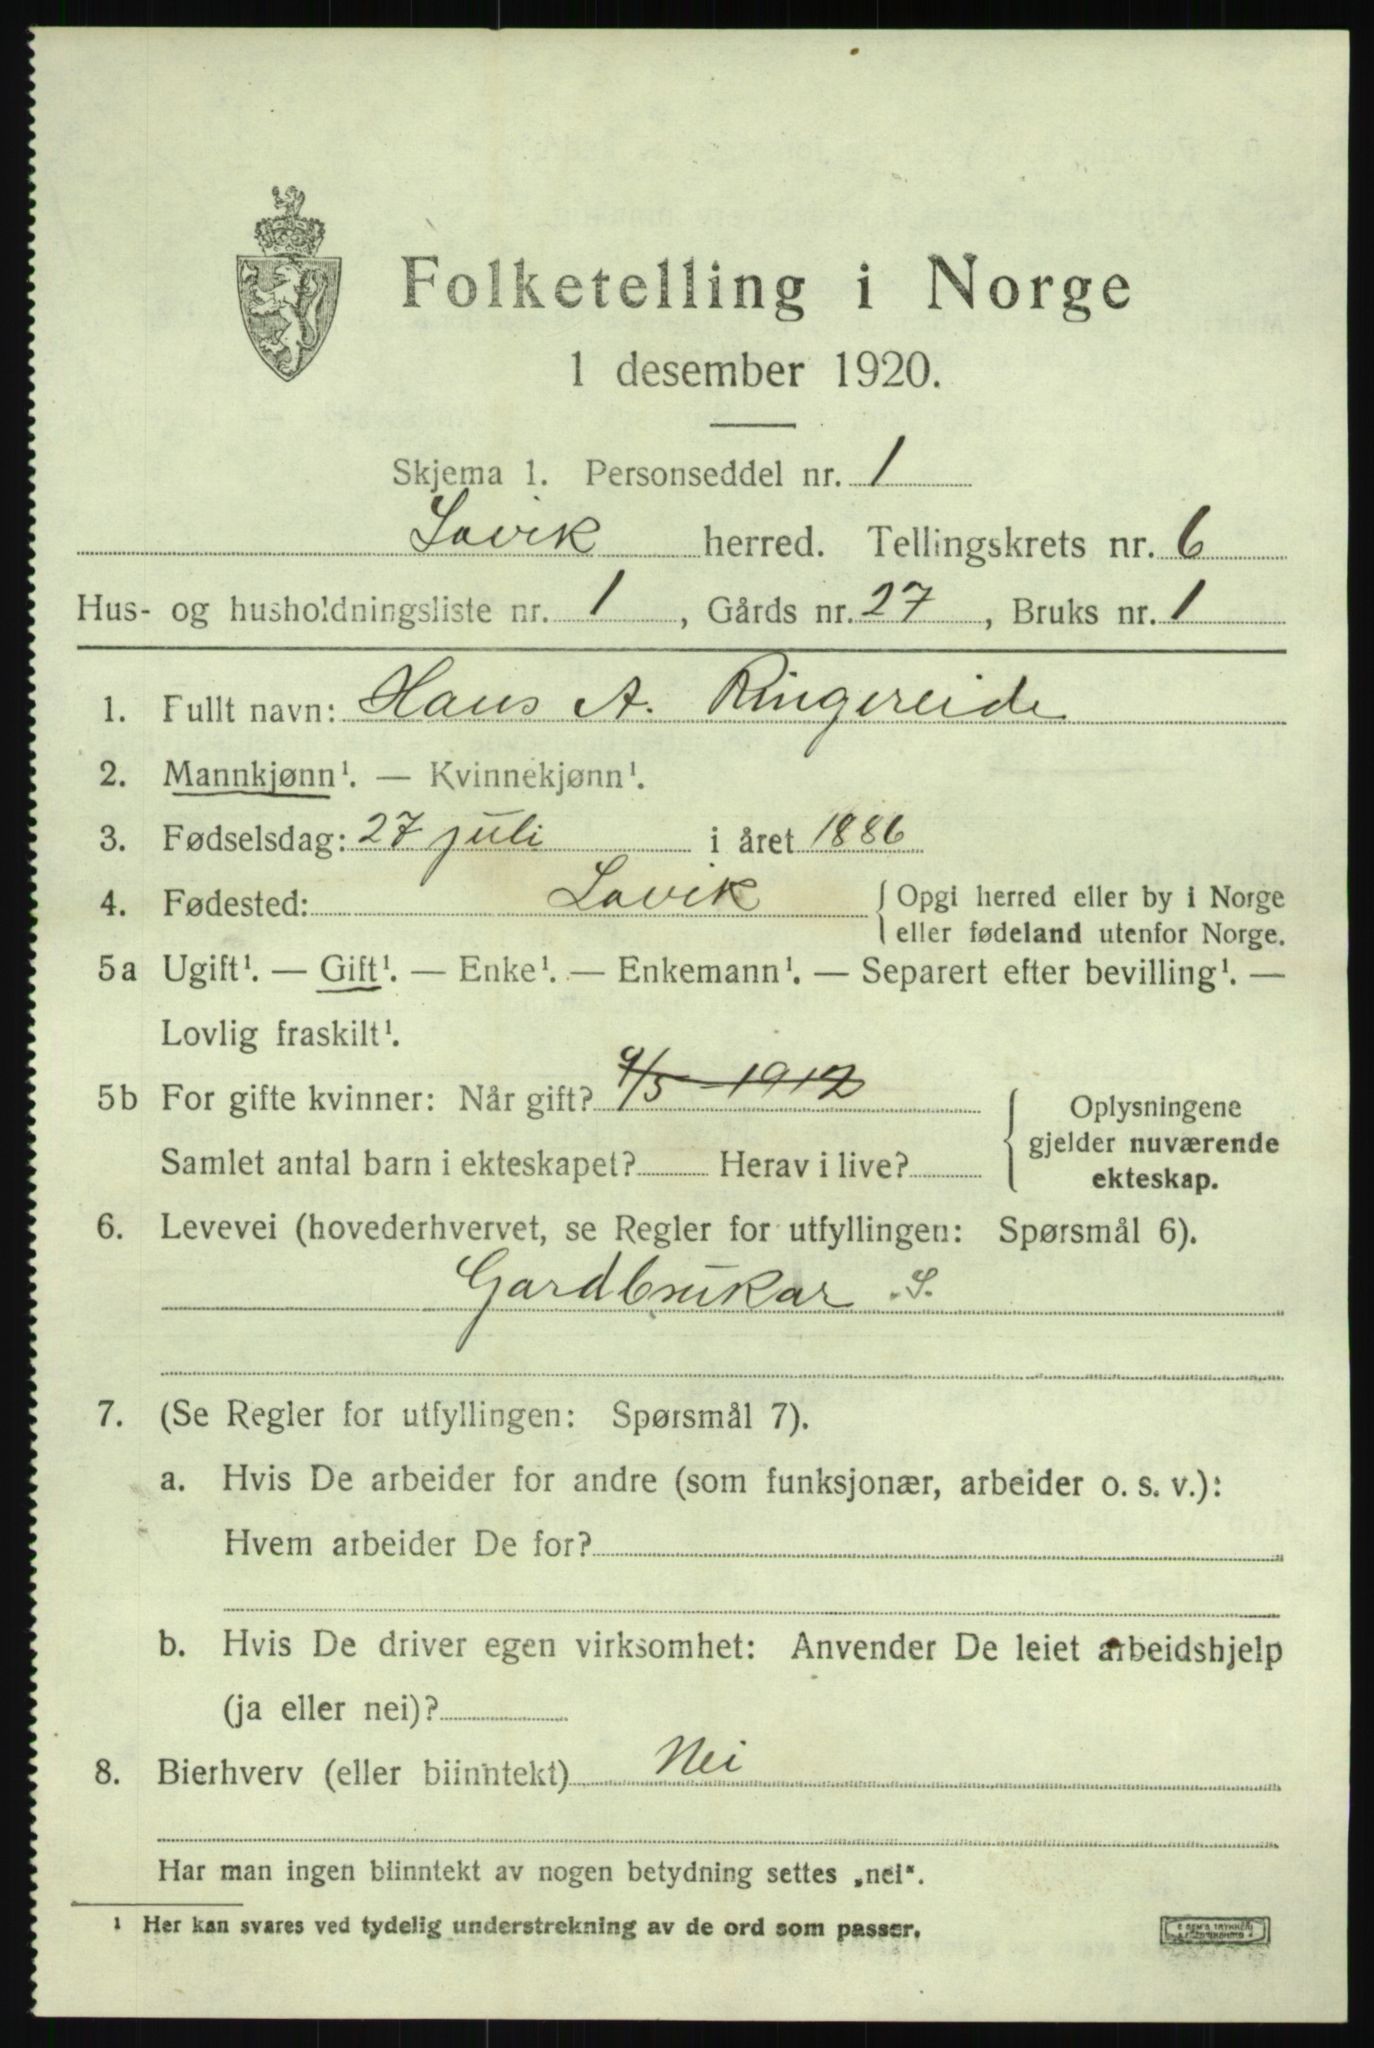 Folketelling i Norge
1 desember 1920.
Skjema 1. Personseddel nr. 1
Lavik herred. Tellingskrets nr. 6
Hus- og husholdningsliste nr. 1, Gårds nr. 27, Bruks nr. 1
1. Fullt navn: Hans A. Ringereide
2. Mannkjønn¹. — Kvinnekjønn¹.
3. Fødselsdag: 27 juli i året 1886
4. Fødested: Lavik { Opgi herred eller by i Norge
eller fødeland utenfor Norge.
5a Ugift¹. — Gift¹. — Enke¹. — Enkemann¹. — Separert efter bevilling¹. —
Lovlig fraskilt¹.
5b For gifte kvinner: Når gift? 9/5 1912
Oplysningene
gjelder nuværende
ekteskap.
Samlet antal barn i ekteskapet? Herav i live?
6. Levevei (hovederhvervet, se Regler for utfyllingen: Spørsmål 6).
Gardbrukar .S.
7. (Se Regler for utfyllingen: Spørsmål 7).
a. Hvis De arbeider for andre (som funksjonær, arbeider o. s. v.):
Hvem arbeider De for?
b. Hvis De driver egen virksomhet: Anvender De leiet arbeidshjelp
(ja eller nei)?
8. Bierhverv (eller biinntekt) Nei
Har man ingen biinntekt av nogen betydning settes „nei“.
¹ Her kan svares ved tydelig understrekning av de ord som passer.